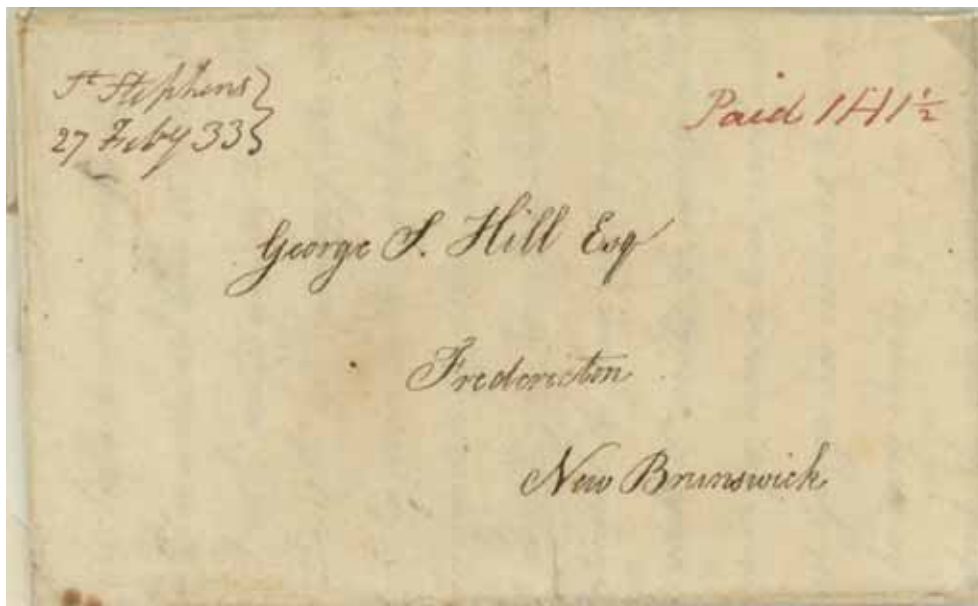 St Stephens
27 Feby 33
Paid 1/1 1/2
George S. Hill Esq
Fredericton
New Brunswick